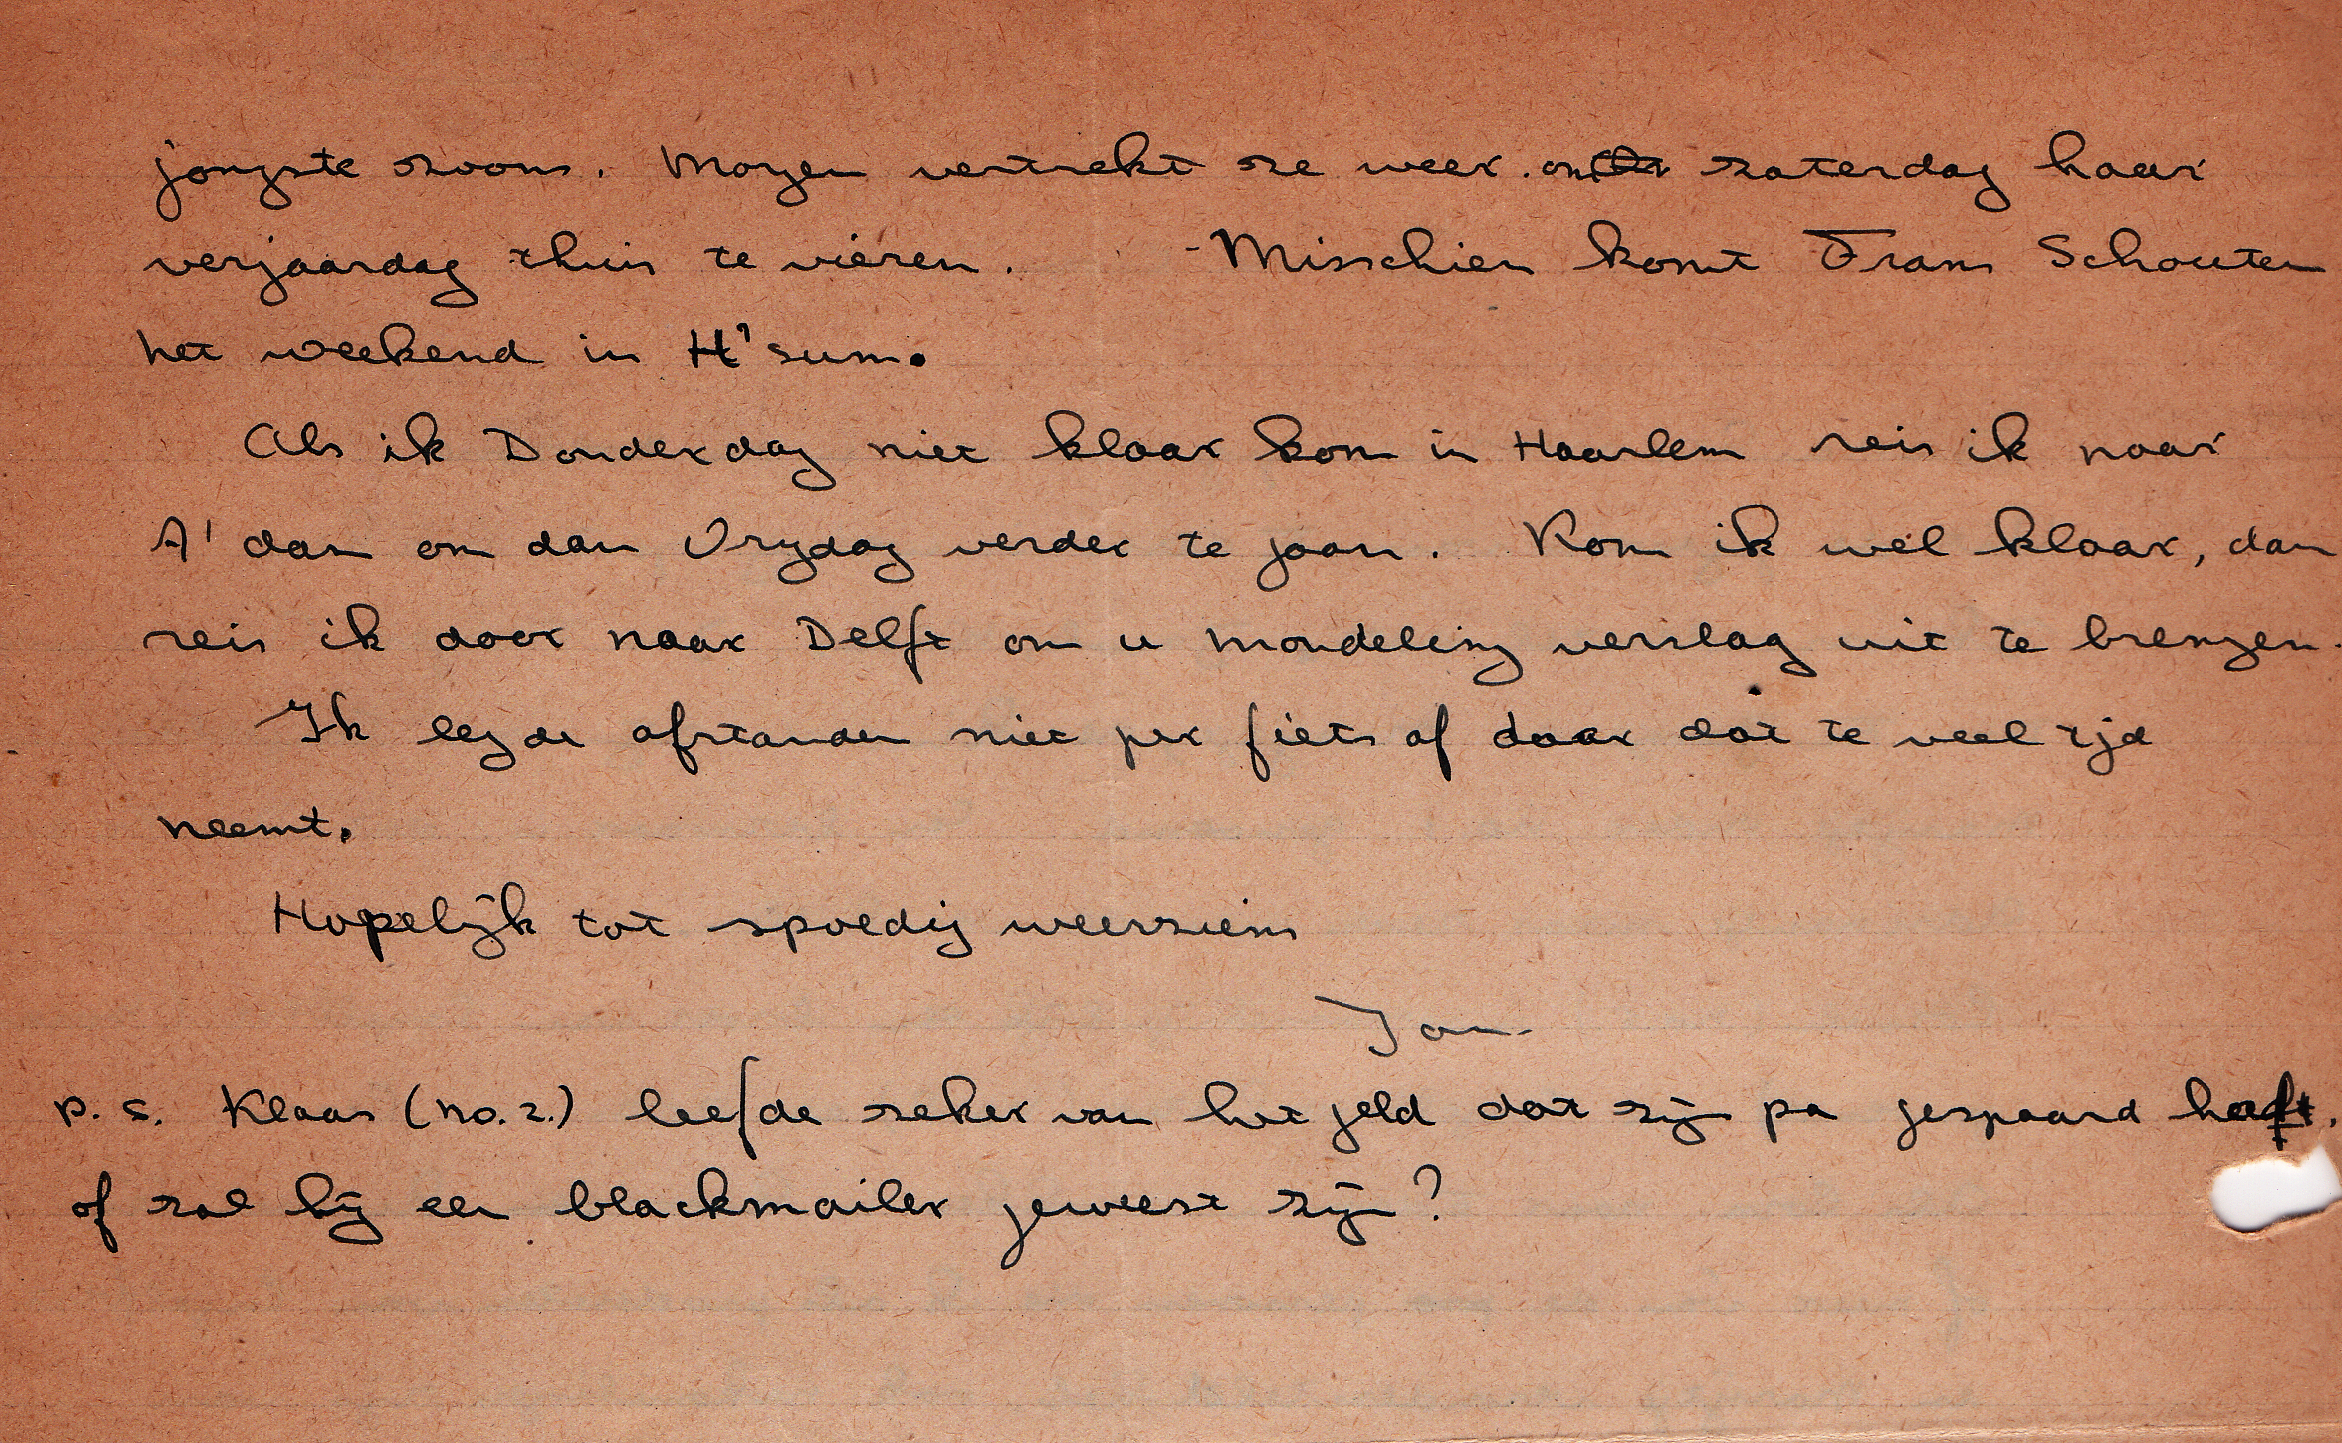 jongste zoons. Morgen vertrekt ze weer om zaterdag haar
verjaardag thuis te vieren. - Misschien komt Frans Schouten
het weekend in H'sum.
Als ik Donderdag niet klaar kom in Haarlem reis ik naar
A'dam om dan Vrydag verder te gaan. Kom ik wel klaar, dan
reis ik door naar Delft om u mondeling verslag uit te brengen.
Ik leg de afstanden niet per fiets af daar dat te veel tijd
neemt.
Hopelijk tot spoedig weerziens
Jan
p.s. Klaas (no. 2.) leefde zeker van het geld dat zijn pa gespaard heeft.
of zal hij een blackmailer geweest zijn?